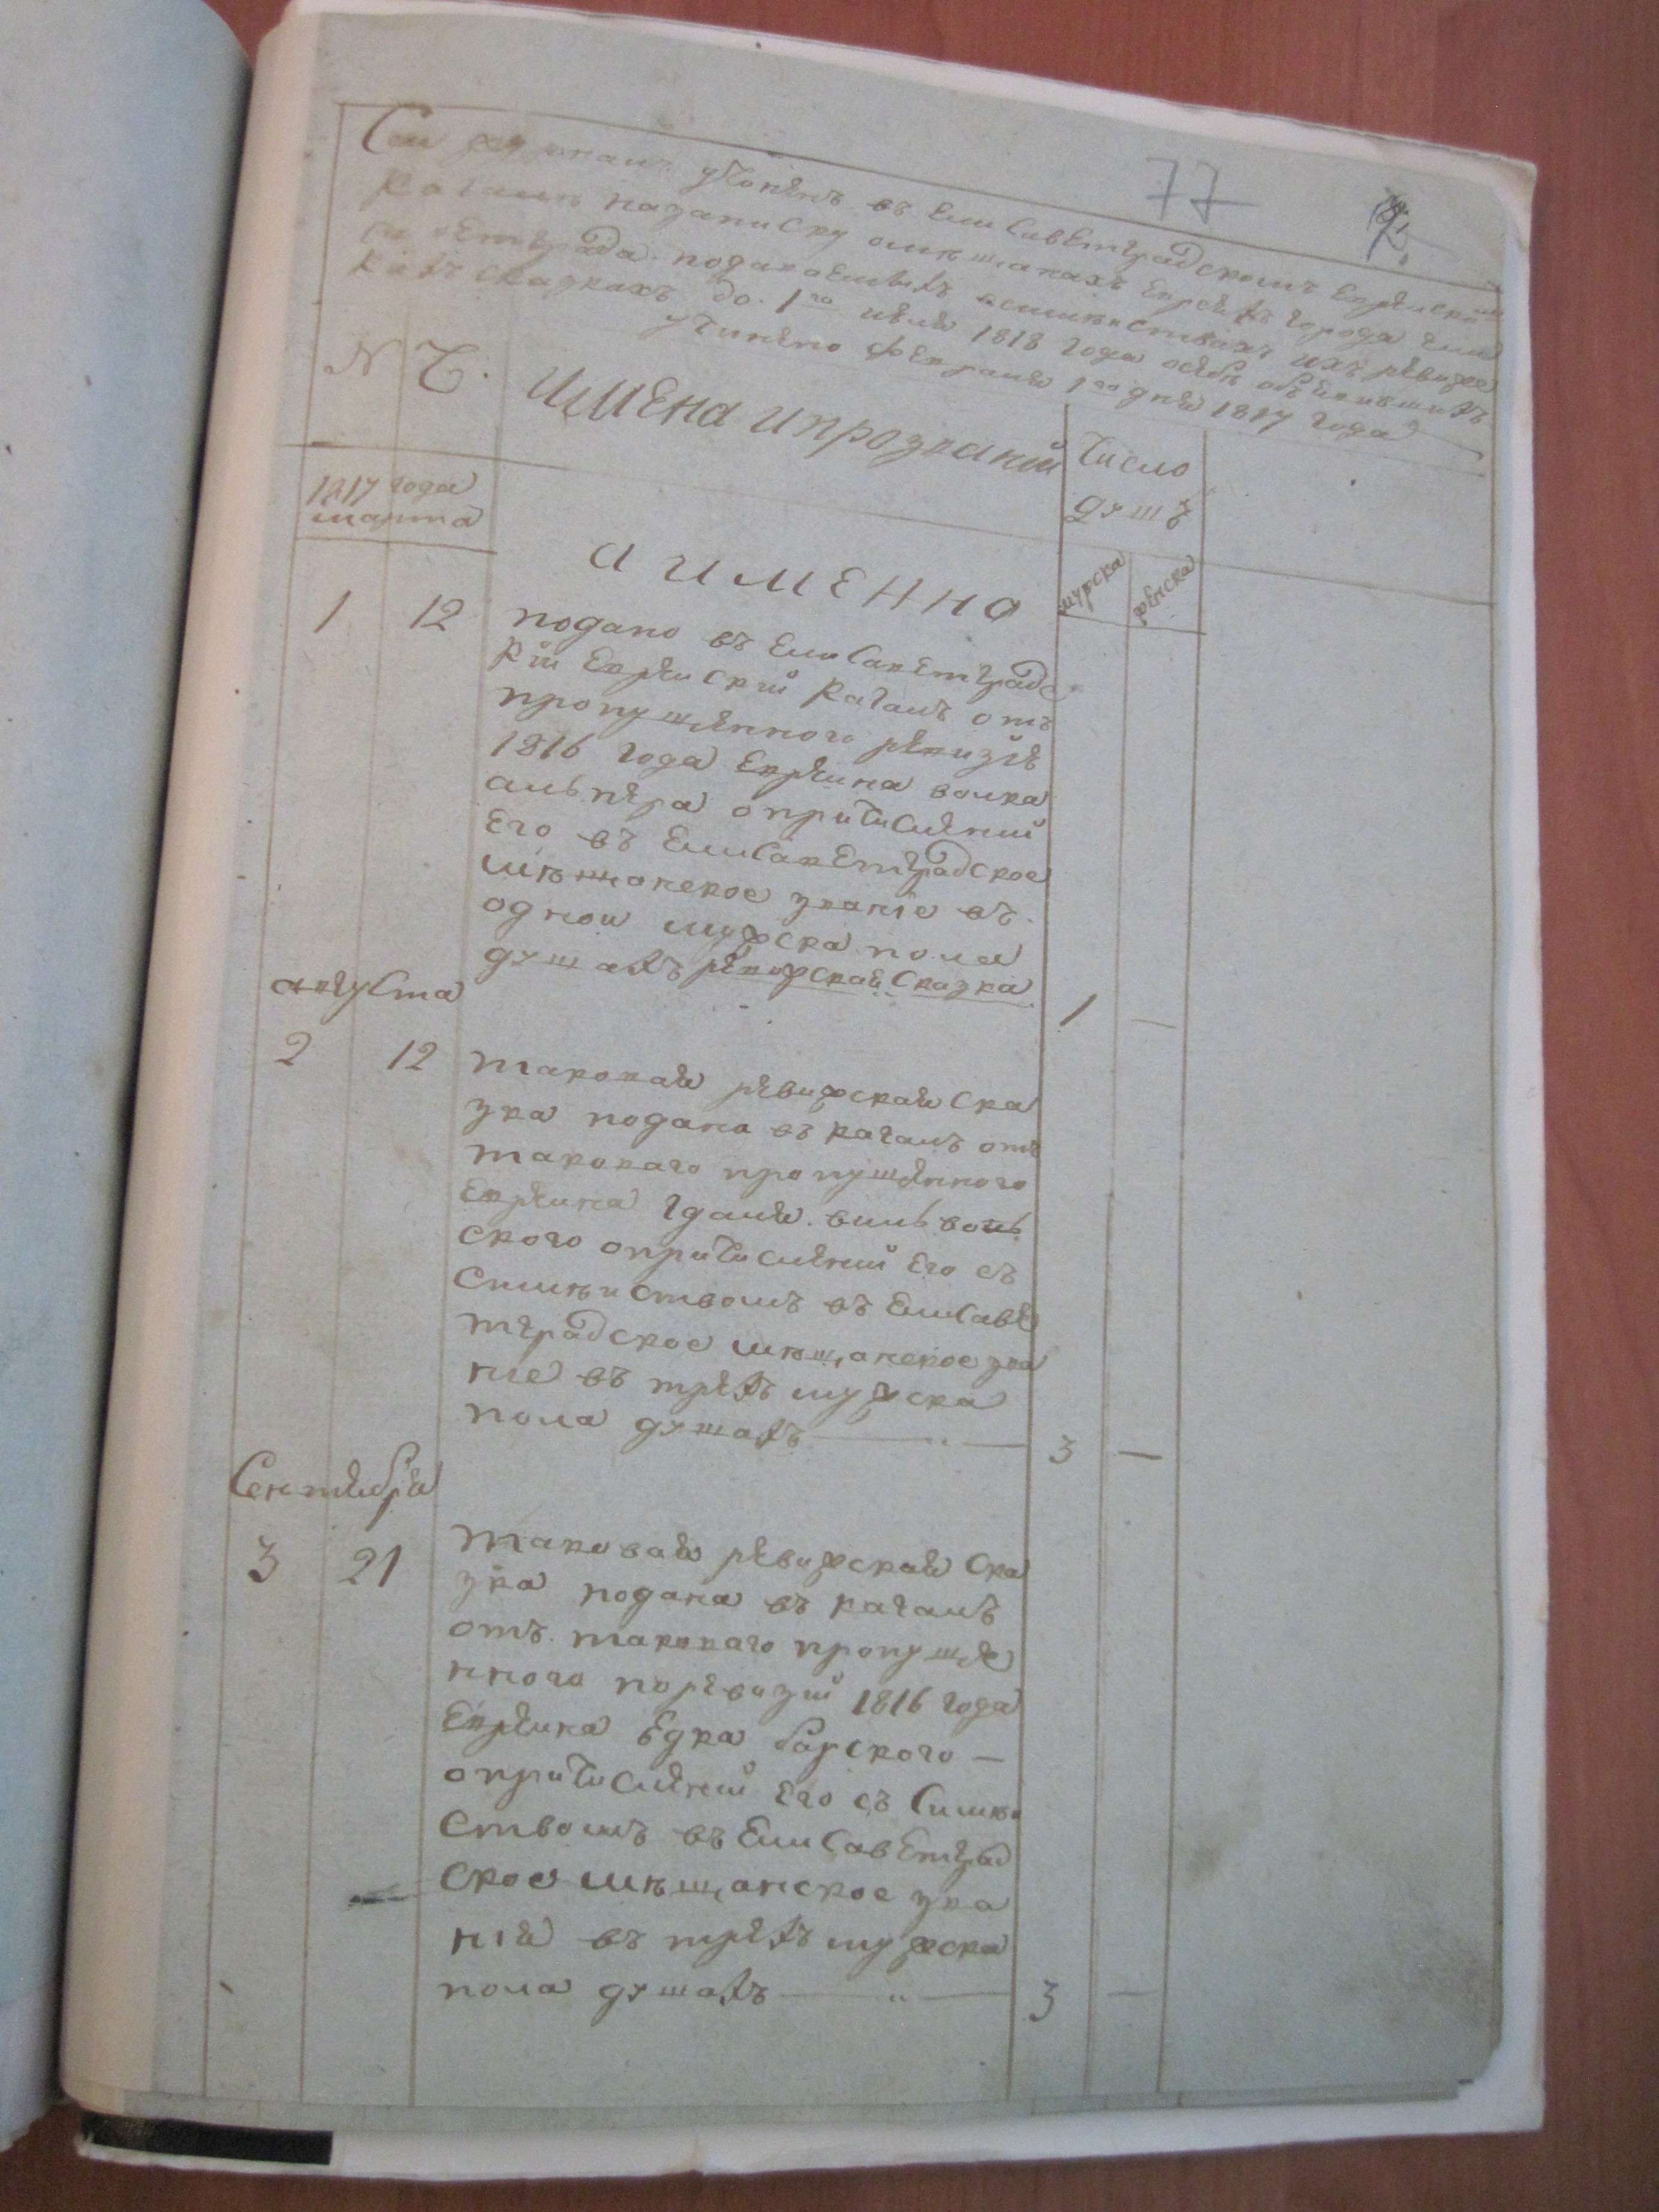 77
2.
Сей журналъ учонѣнъ въ Елисаветградскомъ Еврѣйскомъ
Кагалѣ назаписку омѣщанахъ Еврѣяхъ города Ели
саветграда подаваемыхъ осимѣйствахъ ихъ рѣвизсе
кихъ сказкахъ до 1го июля 1818 года особъ объявившихъ
учинѣно февраля 1го дня 1817 года
N Ч. Имена ипрозваний Число
душъ
мужска женска
1817 года
марта
а именно
1 12 подано въ Елисаветградс
кій Еврѣйский Кагалъ отъ
пропущѣнного рѣвизіѣ
1816 года Еврѣина волка
альпѣра опричислѣний
Его въ Елисаветградское
мѣщанское званіе въ
одной мужска пола
душахъ рѣвизская Сказка 1 —
августа
2 12 таковая рѣвизская ска
зка подана въ кагалъ отъ
таковаго пропущѣнного
Еврѣина гдаля вильволь
ского опричислѣний Его съ
симѣйствомъ въ Елисавѣ
тградское мѣщанское зва
ніе въ трѣхъ мужска
пола душахъ — „ — 3 —
Сентября
3 21 таковая рѣвизская Ска
зка подана въ кагалъ
отъ таковаго пропущѣ
нного порѣвизій 1816 года
Еврѣина ѣдка барского —
опричислѣний Его съ Симѣй
ствомъ въ Елисаветград
ское мѣщанское зва
нія въ трѣхъ мужска
пола душахъ — „ — 3 —